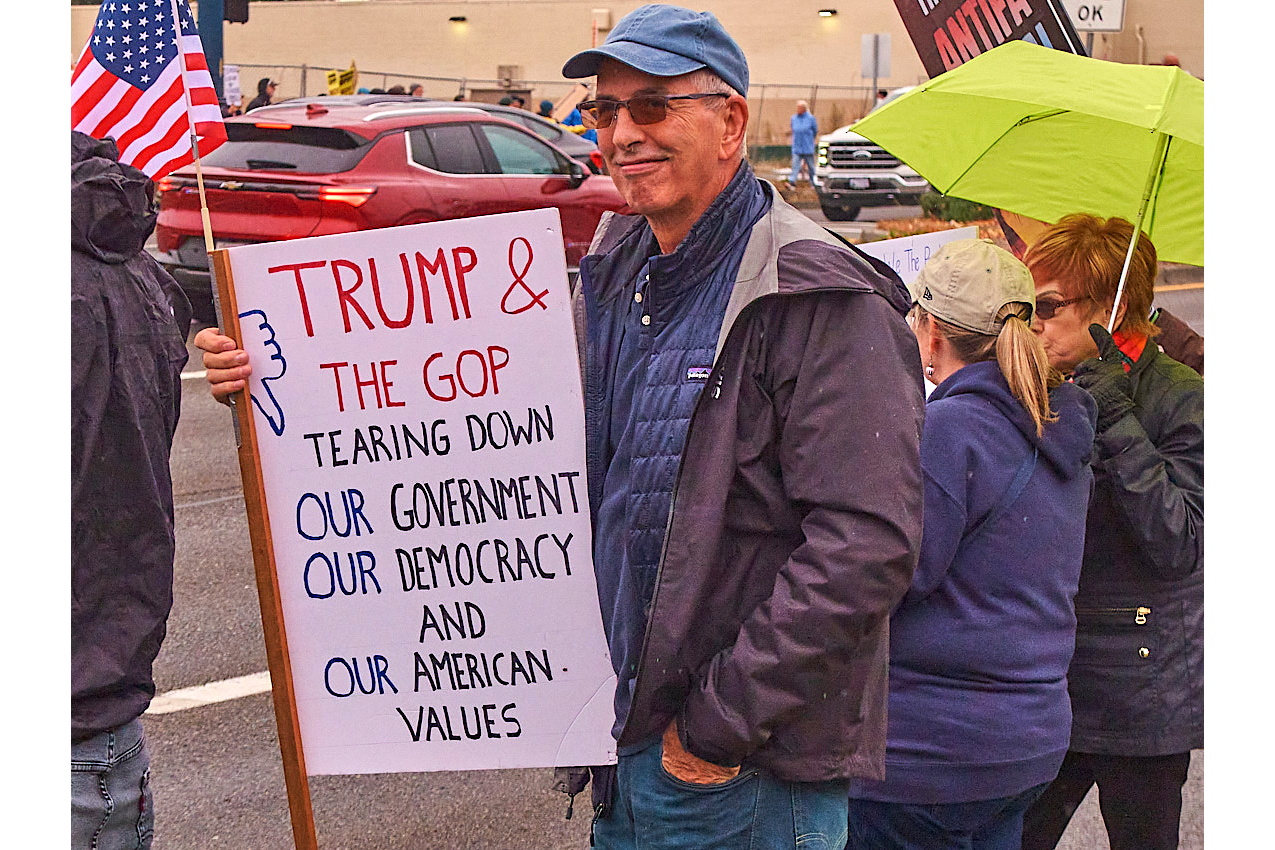 TRUMP &
THE GOP
TEARING DOWN
OUR GOVERNMENT
OUR DEMOCRACY
AND
OUR AMERICAN
VALUES
ANTIFA
OK
The
patagonia